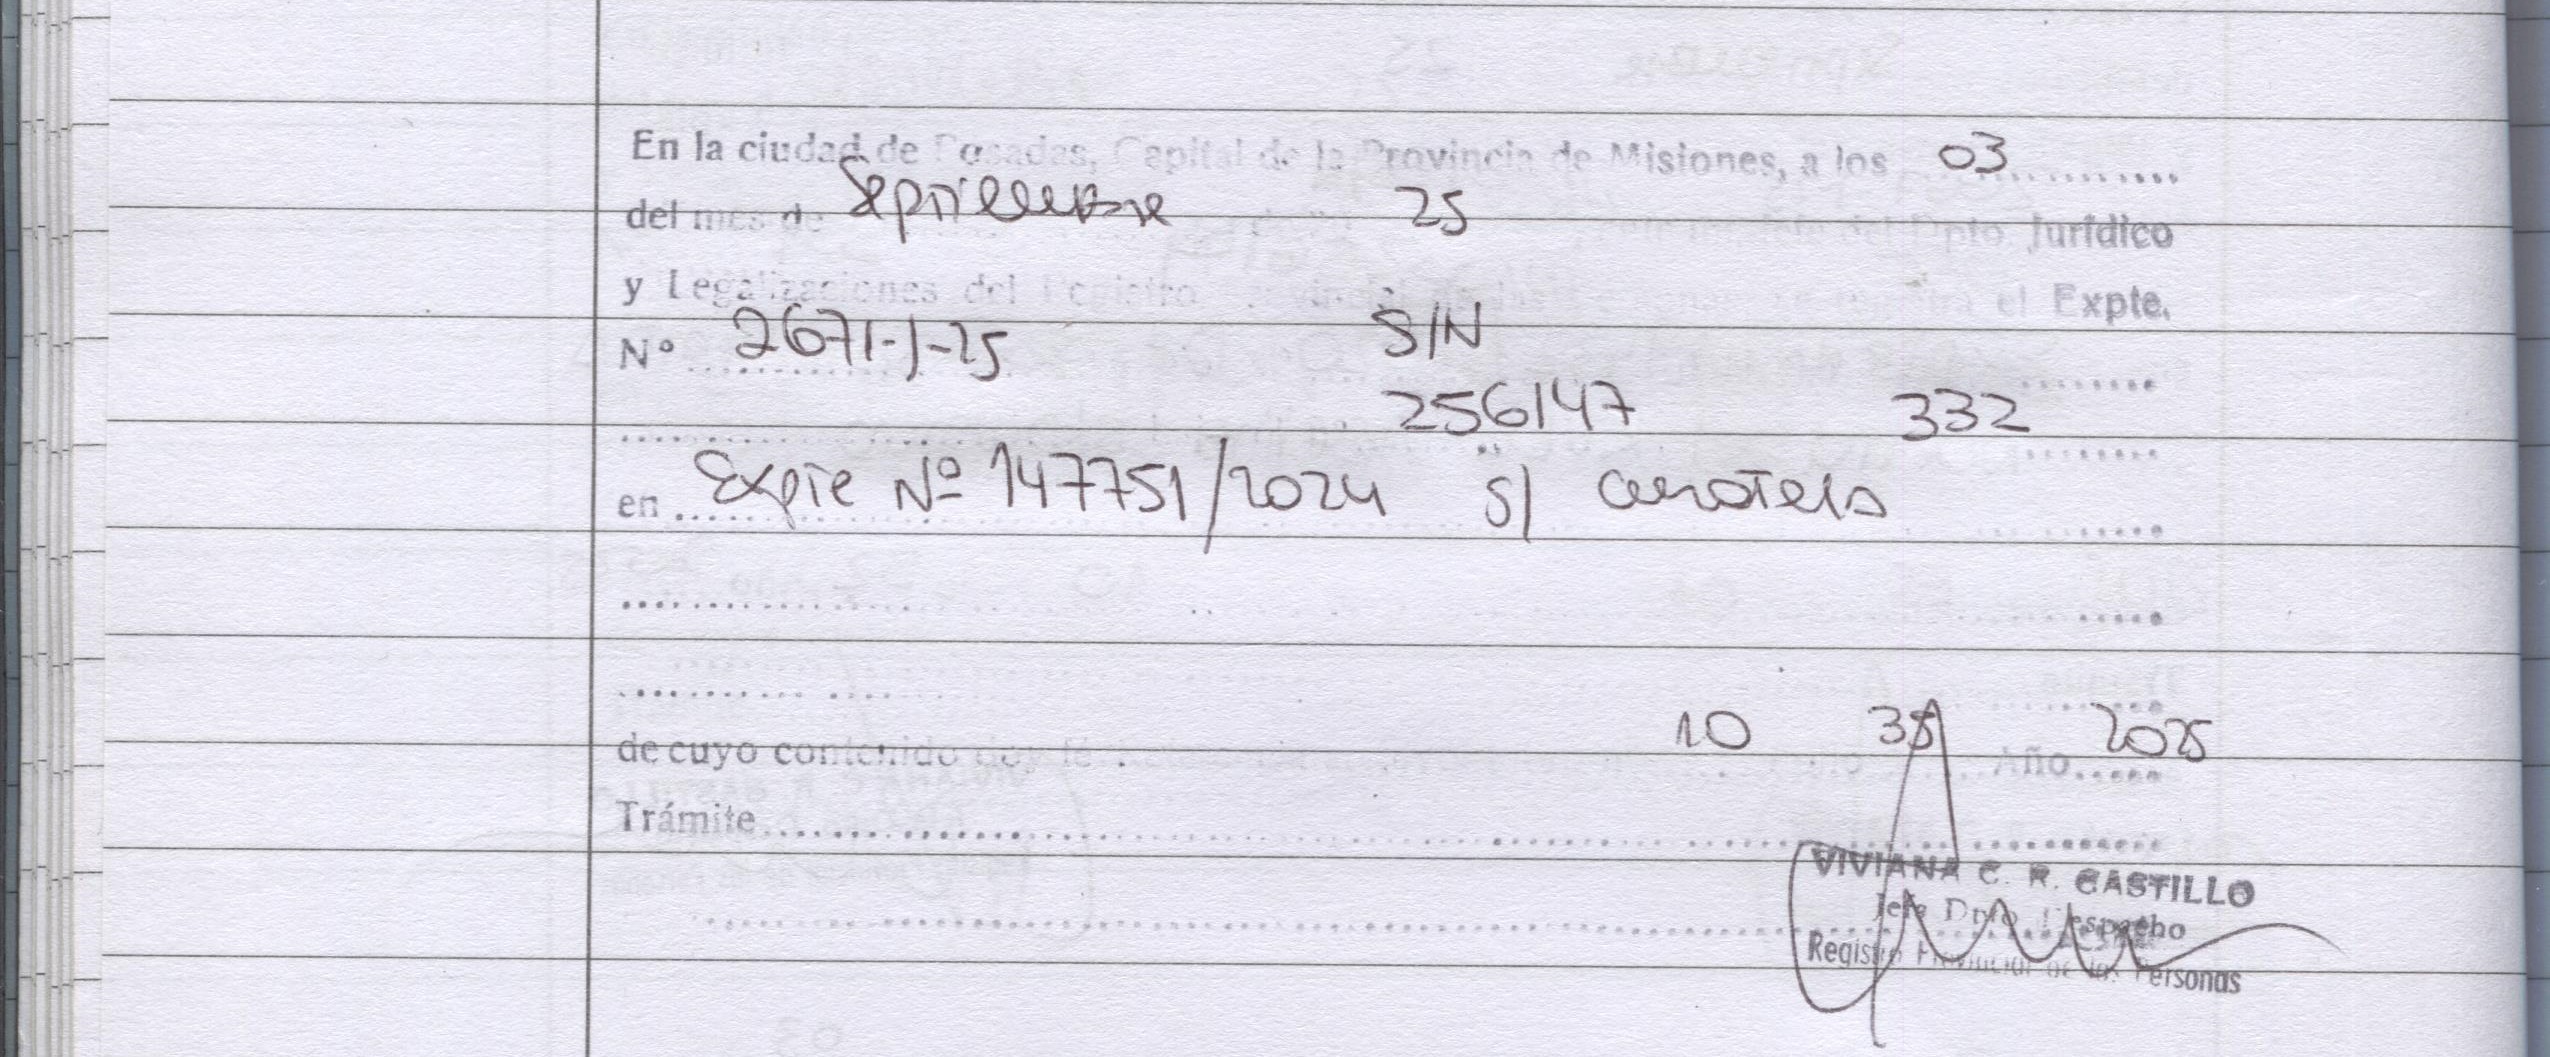 En la ciudad de Posadas, Capital de la Provincia de Misiones, a los 03
del mes de Septiembre 25 Dpto. Jurídico
y Legalizaciones del Registro el Expte.
Nº 2671-J-25 S/N
256147 332
en Expte Nº 147751/2024 s/
de cuyo contenido doy fe 10 35 Año 2025
Trámite
VIVIANA C. R. CASTILLO
Jefa Dpto. Despacho
Registro Provincial de las Personas